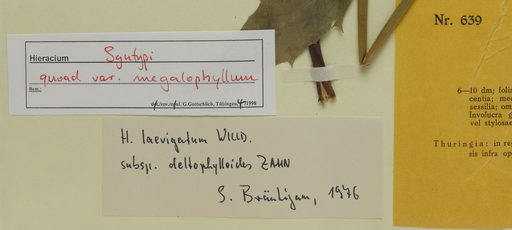 Hieracium Syntypi
quoad var. megalophyllum
Bem.:
det./rev./conf. G.Gottschlich, Tübingen, 4/1998
H. laevigatum WILLD.
subsp. deltophylloides ZAHN
S. Bräutigam, 1976
Nr. 639
6—10 dm; folia
centia; med
sessilia; om
Involucra g
vel stylosa
Thuringia: in reg
sis infra op